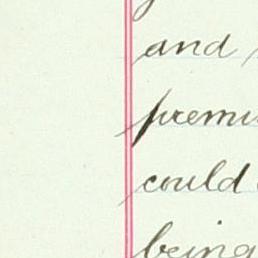 and
premi
could
being